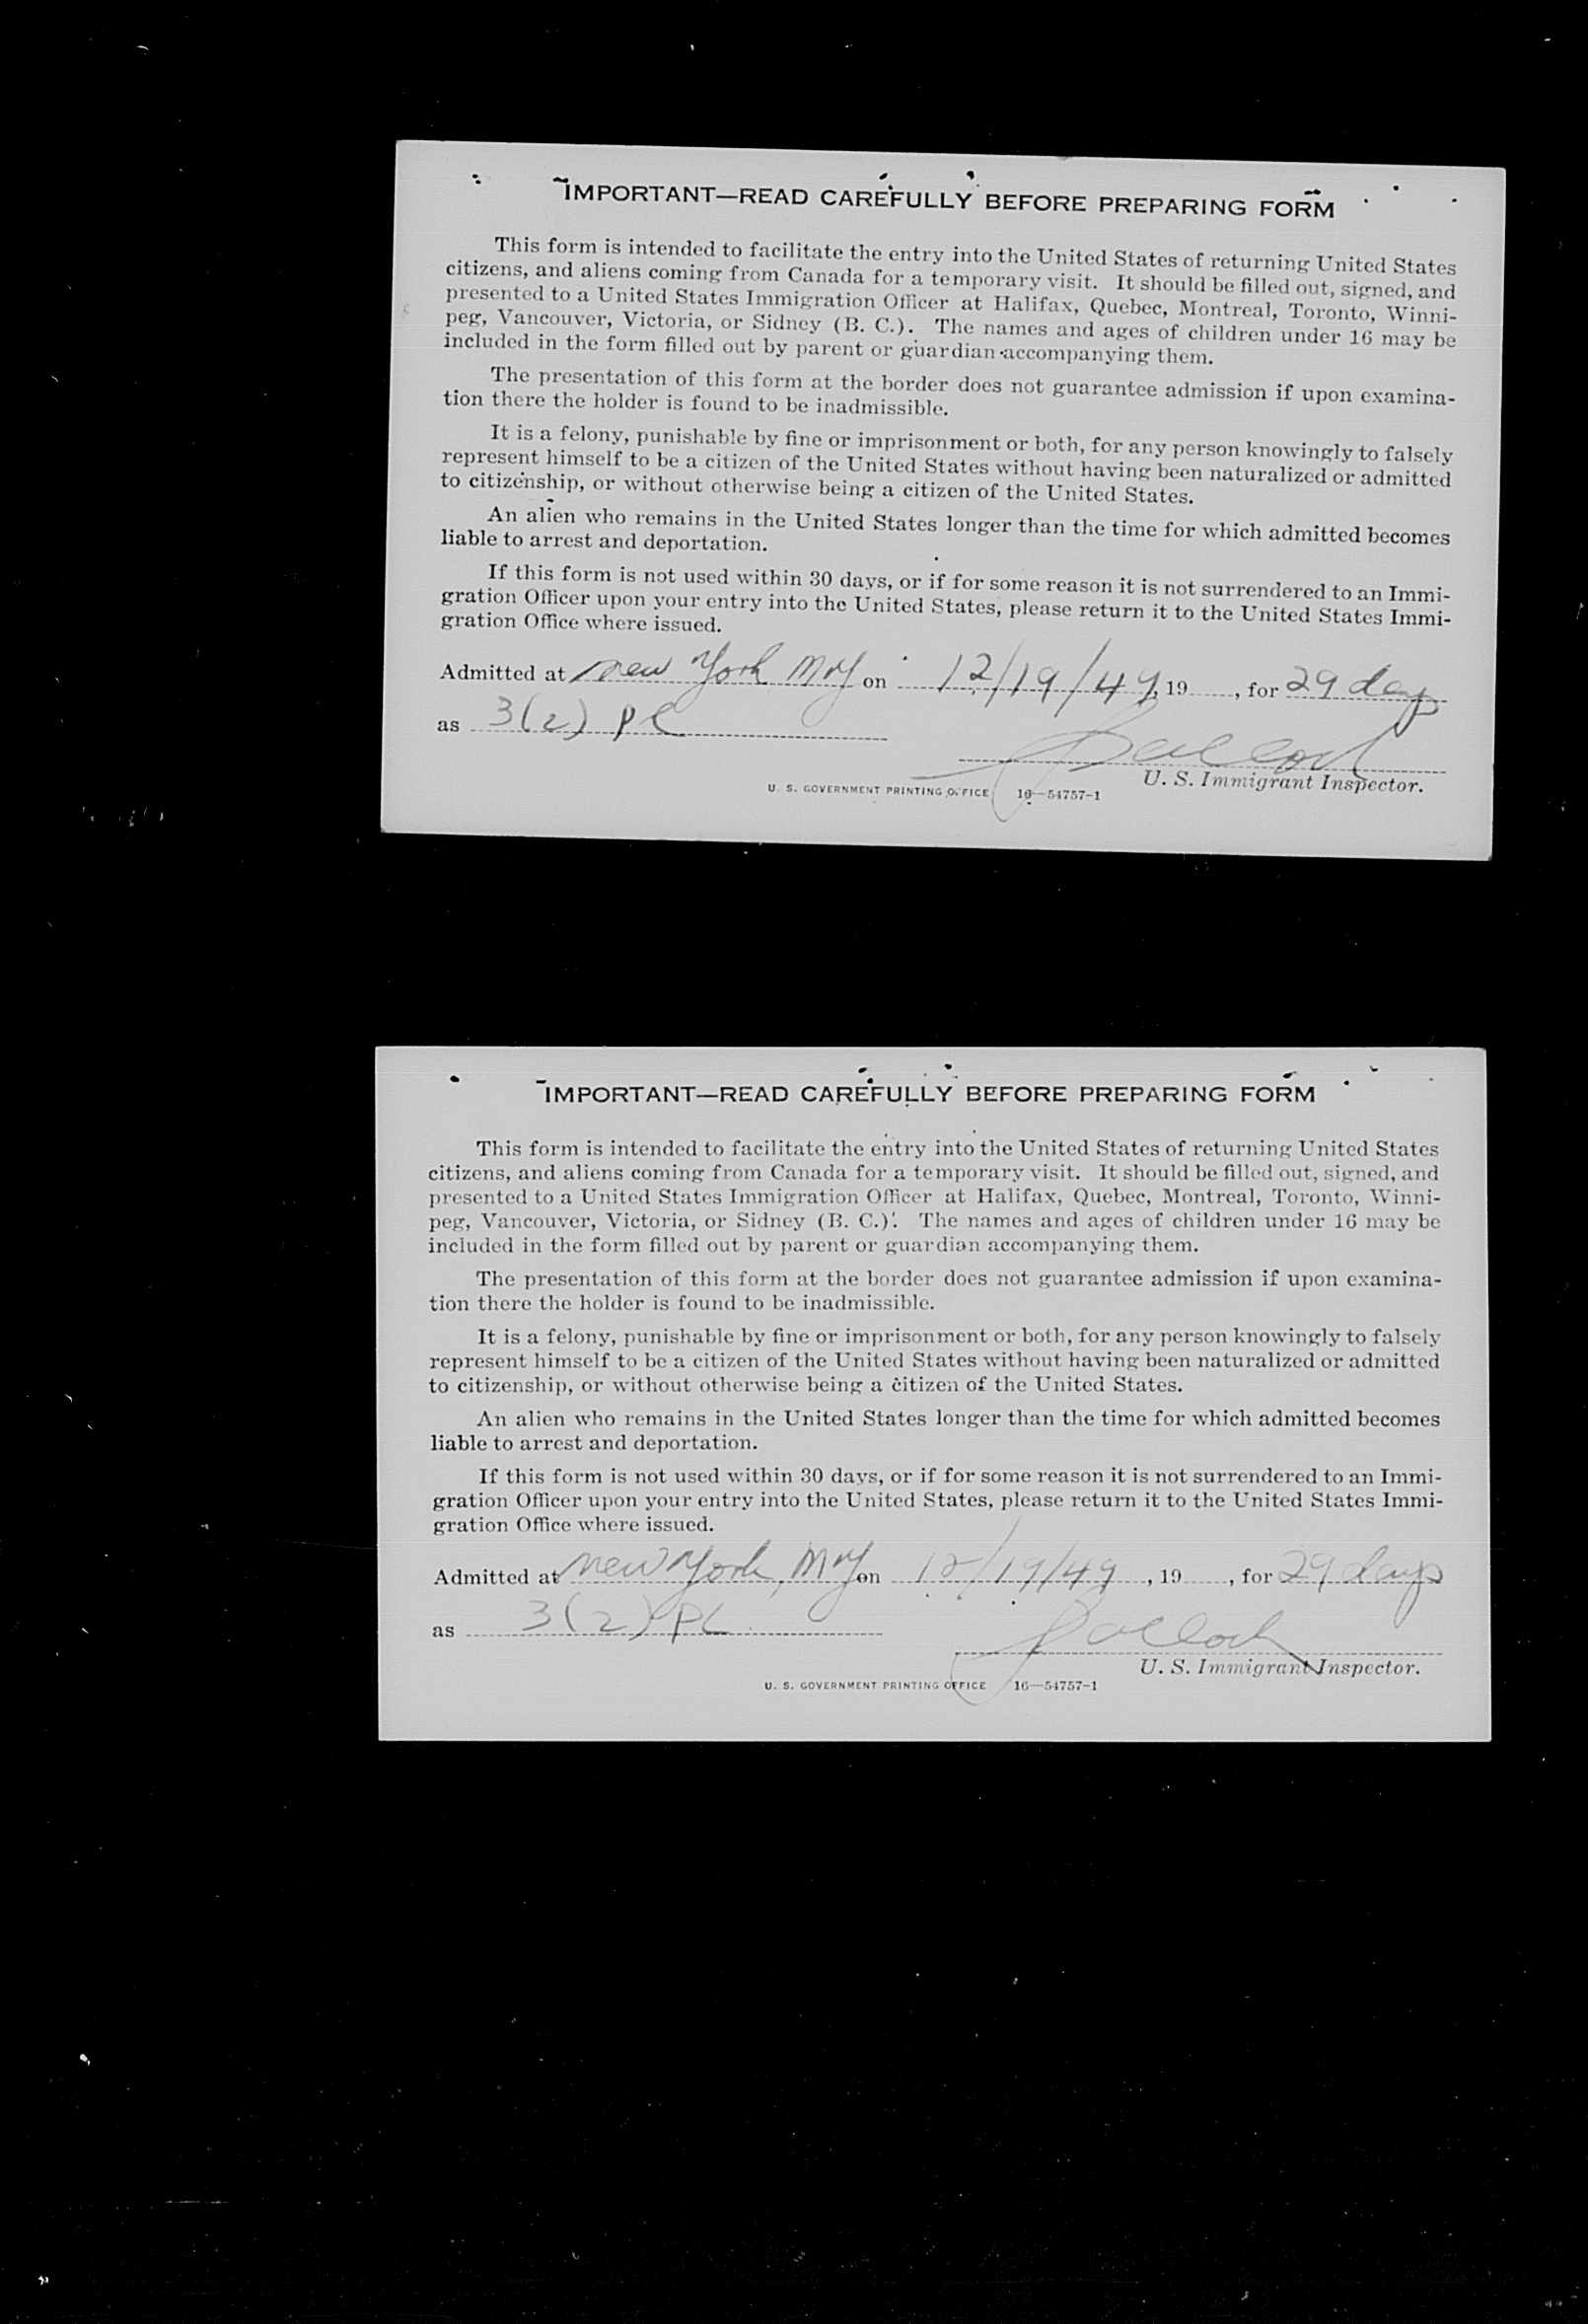 IMPORTANT—READ CAREFULLY BEFORE PREPARING FORM
This form is intended to facilitate the entry into the United States of returning United States
citizens, and aliens coming from Canada for a temporary visit. It should be filled out, signed, and
presented to a United States Immigration Officer at Halifax, Quebec, Montreal, Toronto, Winni-
peg, Vancouver, Victoria, or Sidney (B. C.). The names and ages of children under 16 may be
included in the form filled out by parent or guardian accompanying them.
The presentation of this form at the border does not guarantee admission if upon examina-
tion there the holder is found to be inadmissible.
It is a felony, punishable by fine or imprisonment or both, for any person knowingly to falsely
represent himself to be a citizen of the United States without having been naturalized or admitted
to citizenship, or without otherwise being a citizen of the United States.
An alien who remains in the United States longer than the time for which admitted becomes
liable to arrest and deportation.
If this form is not used within 30 days, or if for some reason it is not surrendered to an Immi-
gration Officer upon your entry into the United States, please return it to the United States Immi-
gration Office where issued.
Admitted at New York NY on 12/19/49, 19, for 29 days
as 3(2) PL
U. S. Immigrant Inspector.
U. S. GOVERNMENT PRINTING OFFICE 16—54757-1
IMPORTANT—READ CAREFULLY BEFORE PREPARING FORM
This form is intended to facilitate the entry into the United States of returning United States
citizens, and aliens coming from Canada for a temporary visit. It should be filled out, signed, and
presented to a United States Immigration Officer at Halifax, Quebec, Montreal, Toronto, Winni-
peg, Vancouver, Victoria, or Sidney (B. C.). The names and ages of children under 16 may be
included in the form filled out by parent or guardian accompanying them.
The presentation of this form at the border does not guarantee admission if upon examina-
tion there the holder is found to be inadmissible.
It is a felony, punishable by fine or imprisonment or both, for any person knowingly to falsely
represent himself to be a citizen of the United States without having been naturalized or admitted
to citizenship, or without otherwise being a citizen of the United States.
An alien who remains in the United States longer than the time for which admitted becomes
liable to arrest and deportation.
If this form is not used within 30 days, or if for some reason it is not surrendered to an Immi-
gration Officer upon your entry into the United States, please return it to the United States Immi-
gration Office where issued.
Admitted at New York, NY on 12/19/49, 19, for 29 days
as 3(2) PL
U. S. Immigrant Inspector.
U. S. GOVERNMENT PRINTING OFFICE 16—54757-1